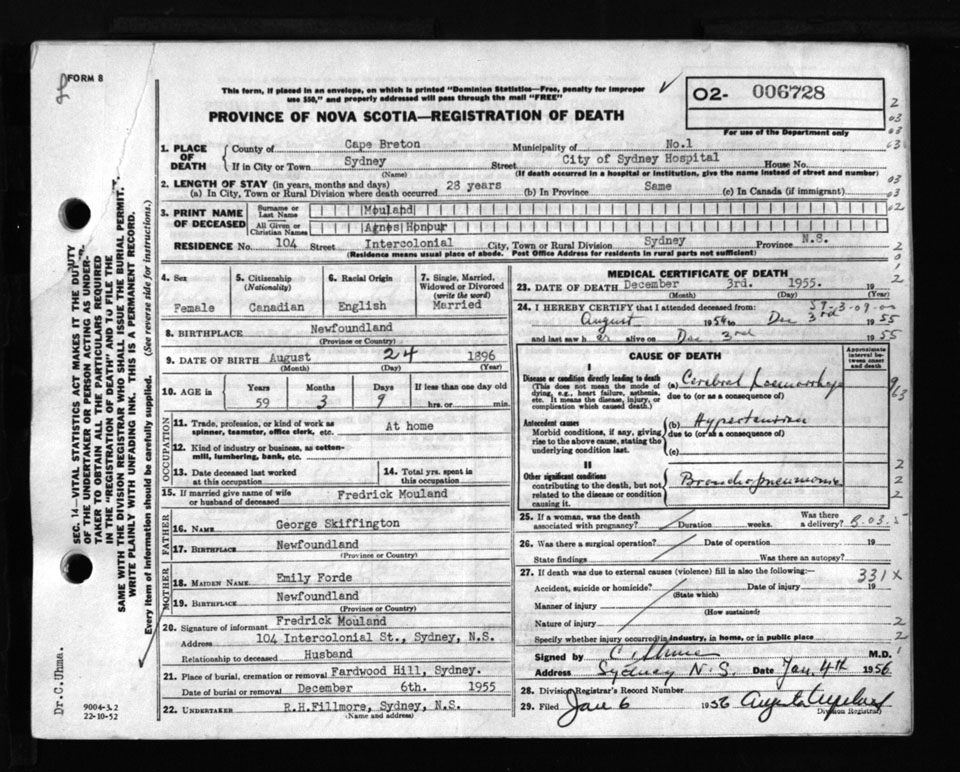 FORM 8
This form, if placed in an envelope, on which is printed "Dominion Statistics—Free, penalty for improper
use $50," and properly addressed will pass through the mail "FREE"
02- 006728
PROVINCE OF NOVA SCOTIA—REGISTRATION OF DEATH
For use of the Department only
1. PLACE OF DEATH
County of Cape Breton Municipality of No.1
If in City or Town Sydney Street City of Sydney Hospital House No.
(Name) (If death occurred in a hospital or institution, give the name instead of street and number)
2. LENGTH OF STAY (in years, months and days)
(a) In City, Town or Rural Division where death occurred 28 years (b) In Province Same (c) In Canada (if immigrant)
3. PRINT NAME OF DECEASED
Surname or Last Name Mouland
All Given or Christian Names Agnes Honour
RESIDENCE No. 104 Street Intercolonial City, Town or Rural Division Sydney Province N.S.
(Residence means usual place of abode. Post Office Address for residents in rural parts not sufficient)
4. Sex Female
5. Citizenship (Nationality) Canadian
6. Racial Origin English
7. Single, Married, Widowed or Divorced (write the word) Married
8. BIRTHPLACE Newfoundland
(Province or Country)
9. DATE OF BIRTH August 24 1896
(Month) (Day) (Year)
10. AGE in Years Months Days If less than one day old
59 3 9 hrs. or min.
OCCUPATION
11. Trade, profession, or kind of work as spinner, teamster, office clerk, etc. At home
12. Kind of industry or business, as cotton-mill, lumbering, bank, etc.
13. Date deceased last worked at this occupation
14. Total yrs. spent in this occupation
15. If married give name of wife or husband of deceased Fredrick Mouland
FATHER
16. NAME George Skiffington
17. BIRTHPLACE Newfoundland
(Province or Country)
MOTHER
18. MAIDEN NAME Emily Forde
19. BIRTHPLACE Newfoundland
(Province or Country)
20. Signature of informant Fredrick Mouland
Address 104 Intercolonial St., Sydney, N.S.
Relationship to deceased Husband
21. Place of burial, cremation or removal Fardwood Hill, Sydney.
Date of burial or removal December 6th. 1955
22. UNDERTAKER R.H.Fillmore, Sydney, N.S.
(Name and address)
MEDICAL CERTIFICATE OF DEATH
23. DATE OF DEATH December 3rd. 1955.
(Month) (Day) (Year)
24. I HEREBY CERTIFY that I attended deceased from:
August 1954 to Dec 3rd 1955
and last saw her alive on Dec. 3rd 1955
CAUSE OF DEATH
Approximate interval between onset and death
I
Disease or condition directly leading to death
(This does not mean the mode of dying, e.g., heart failure, asthenia, etc. It means the disease, injury, or complication which caused death.)
(a) Cerebral haemorrhage
due to (or as a consequence of)
Antecedent causes
Morbid conditions, if any, giving rise to the above cause, stating the underlying condition last.
(b) Hypertension
due to (or as a consequence of)
(c)
II
Other significant conditions
contributing to the death, but not related to the disease or condition causing it.
Bronchopneumonia
25. If a woman, was the death associated with pregnancy? Duration weeks. Was there a delivery?
26. Was there a surgical operation? Date of operation 19
State findings Was there an autopsy?
27. If death was due to external causes (violence) fill in also the following:— 331X
Accident, suicide or homicide? Date of injury 19
(State which)
Manner of injury
(How sustained)
Nature of injury
Specify whether injury occurred in industry, in home, or in public place
Signed by C. Uhma M.D.
Address Sydney N.S. Date Jan. 4th 1956
28. Division Registrar's Record Number
29. Filed Jan 6 1956
Division Registrar
SEC. 14—VITAL STATISTICS ACT MAKES IT THE DUTY
OF THE UNDERTAKER OR PERSON ACTING AS UNDER-
TAKER TO OBTAIN ALL THE PARTICULARS REQUIRED
IN THE "REGISTRATION OF DEATH" AND TO FILE THE
SAME WITH THE DIVISION REGISTRAR WHO SHALL ISSUE THE BURIAL PERMIT.
WRITE PLAINLY WITH UNFADING INK. THIS IS A PERMANENT RECORD.
Every item of information should be carefully supplied. (See reverse side for instructions.)
Dr. C. Uhma.
9004-3.2
22-10-52